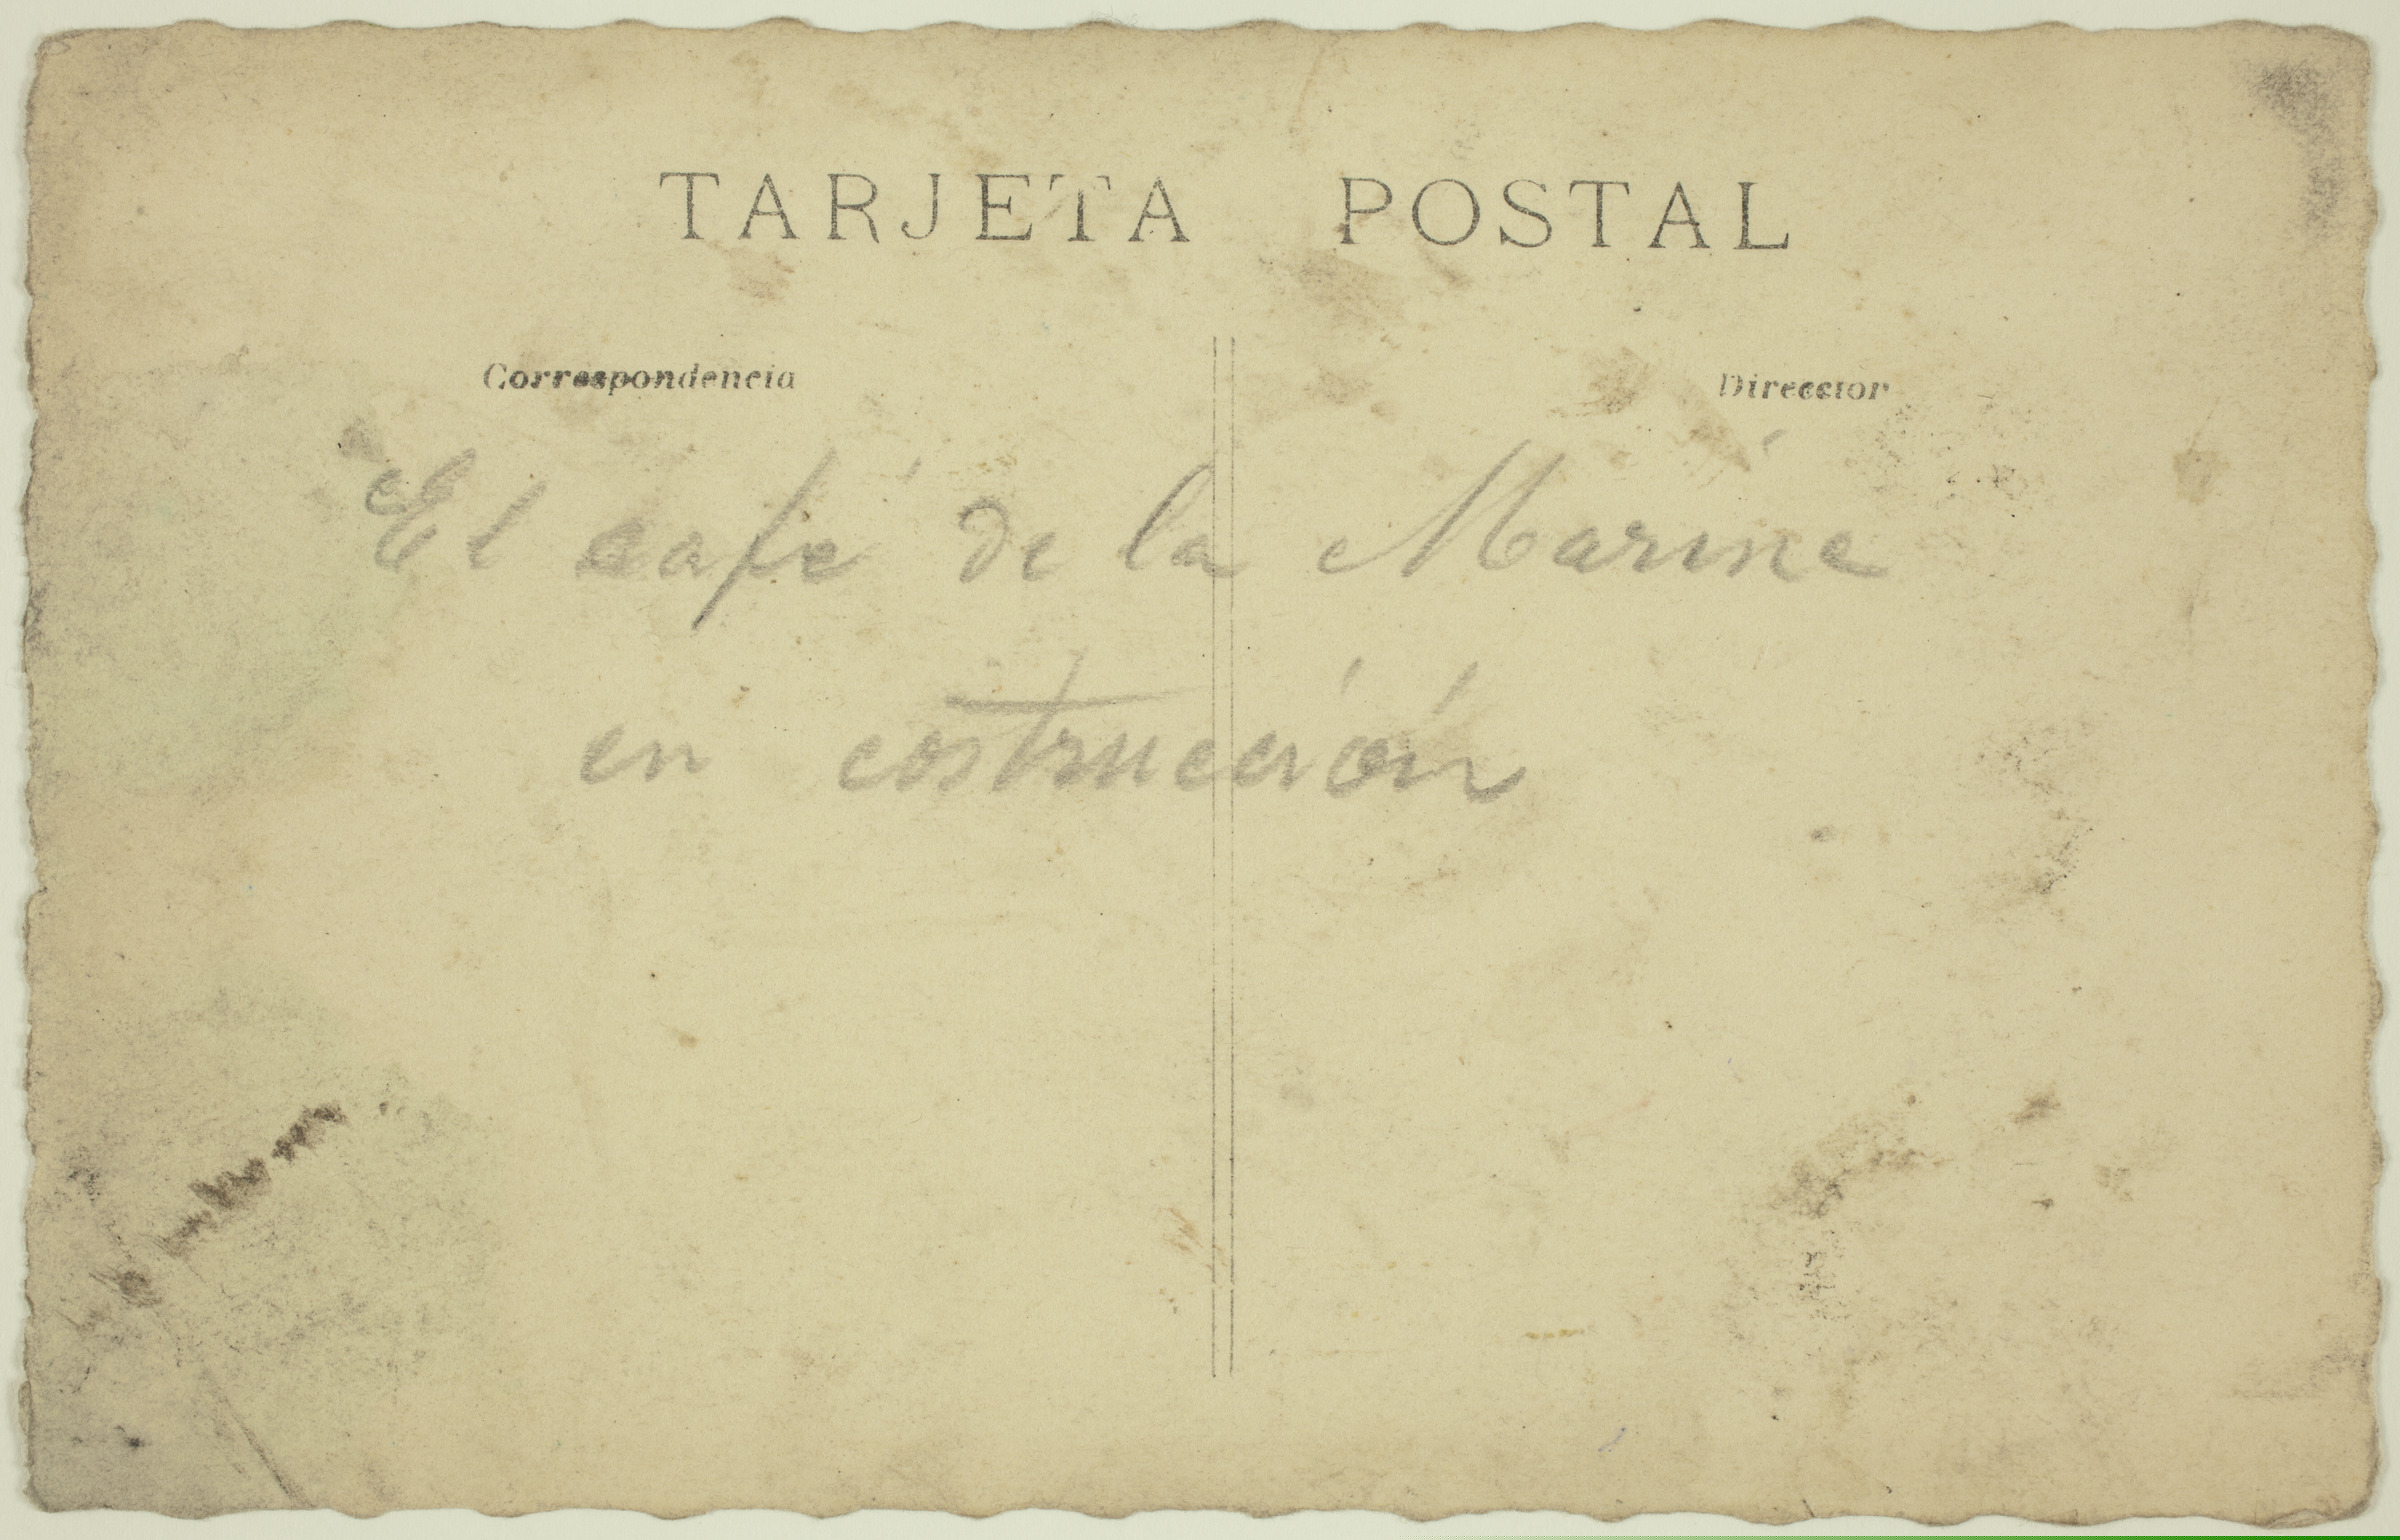 TARJETA POSTAL
Correspondencia
Direccion
El café de la Marine
en costrucción